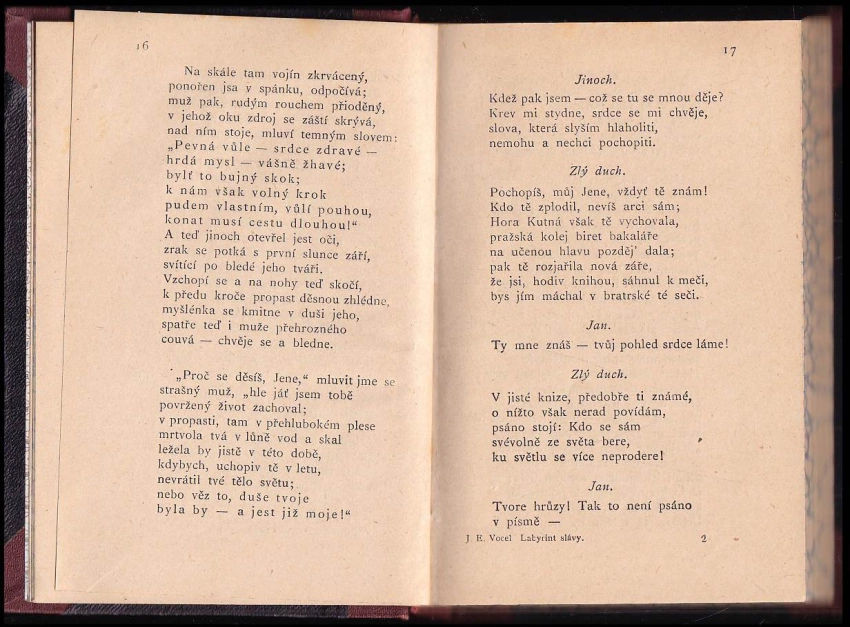 16
Na skále tam vojín zkrvácený,
ponořen jsa v spánku, odpočívá;
muž pak, rudým rouchem přioděný,
v jehož oku zdroj se záští skrývá,
nad ním stoje, mluví temným slovem:
„Pevná vůle — srdce zdravé —
hrdá mysl — vášně žhavé;
bylť to bujný skok;
k nám však volný krok
pudem vlastním, vůlí pouhou,
konat musí cestu dlouhou!“
A teď jinoch otevřel jest oči,
zrak se potká s první slunce září,
svítící po bledé jeho tváři.
Vzchopí se a na nohy teď skočí,
k předu kroče propast děsnou zhlédne,
myšlénka se kmitne v duši jeho,
spatře teď i muže přehrozného
couvá — chvěje se a bledne.
„Proč se děsíš, Jene,“ mluvit jme se
strašný muž, „hle jáť jsem tobě
povržený život zachoval;
v propasti, tam v přehlubokém plese
mrtvola tvá v lůně vod a skal
ležela by jistě v této době,
kdybych, uchopiv tě v letu,
nevrátil tvé tělo světu;
nebo věz to, duše tvoje
byla by — a jest již moje!“
17
Jinoch.
Kdež pak jsem — což se tu se mnou děje?
Krev mi stydne, srdce se mi chvěje,
slova, která slyším hlaholiti,
nemohu a nechci pochopiti.
Zlý duch.
Pochopíš, můj Jene, vždyť tě znám!
Kdo tě zplodil, nevíš arci sám;
Hora Kutná však tě vychovala,
pražská kolej biret bakaláře
na učenou hlavu později’ dala;
pak tě rozjařila nová záře,
že jsi, hodiv knihou, sáhnul k meči,
bys jím máchal v bratrské té seči.
Jan.
Ty mne znáš — tvůj pohled srdce láme!
Zlý duch.
V jisté knize, předobře ti známé,
o nížto však nerad povídám,
psáno stojí: Kdo se sám
svévolně ze světa bere,
ku světlu se více neprodere!
Jan.
Tvore hrůzy! Tak to není psáno
v písmě —
J. E. Vocel Labyrint slávy. 2